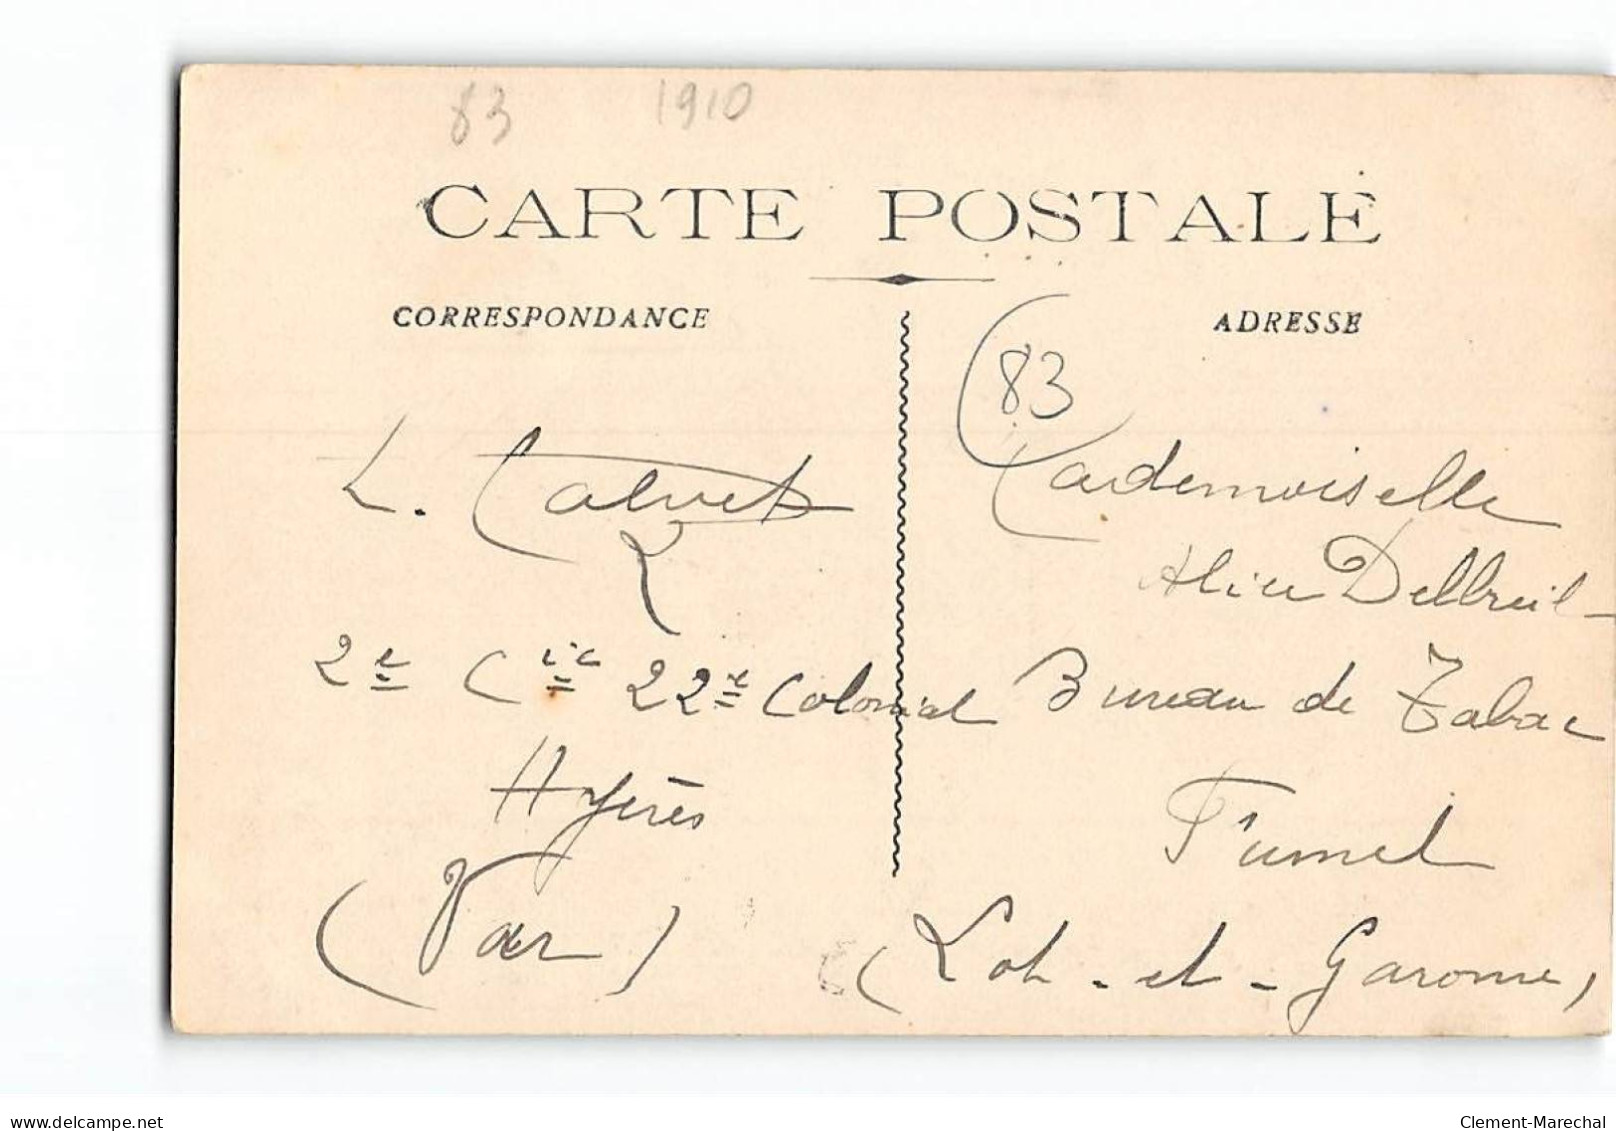 83 1910
CARTE POSTALE
CORRESPONDANCE
L. Calvet
2e Cie 22e Colonial
Hyères
(Var)
ADRESSE
83
Mademoiselle
Alice Delbreil
Bureau de Tabac
Fumel
(Lot-et-Garonne)
delcampe.net
Clement-Marechal